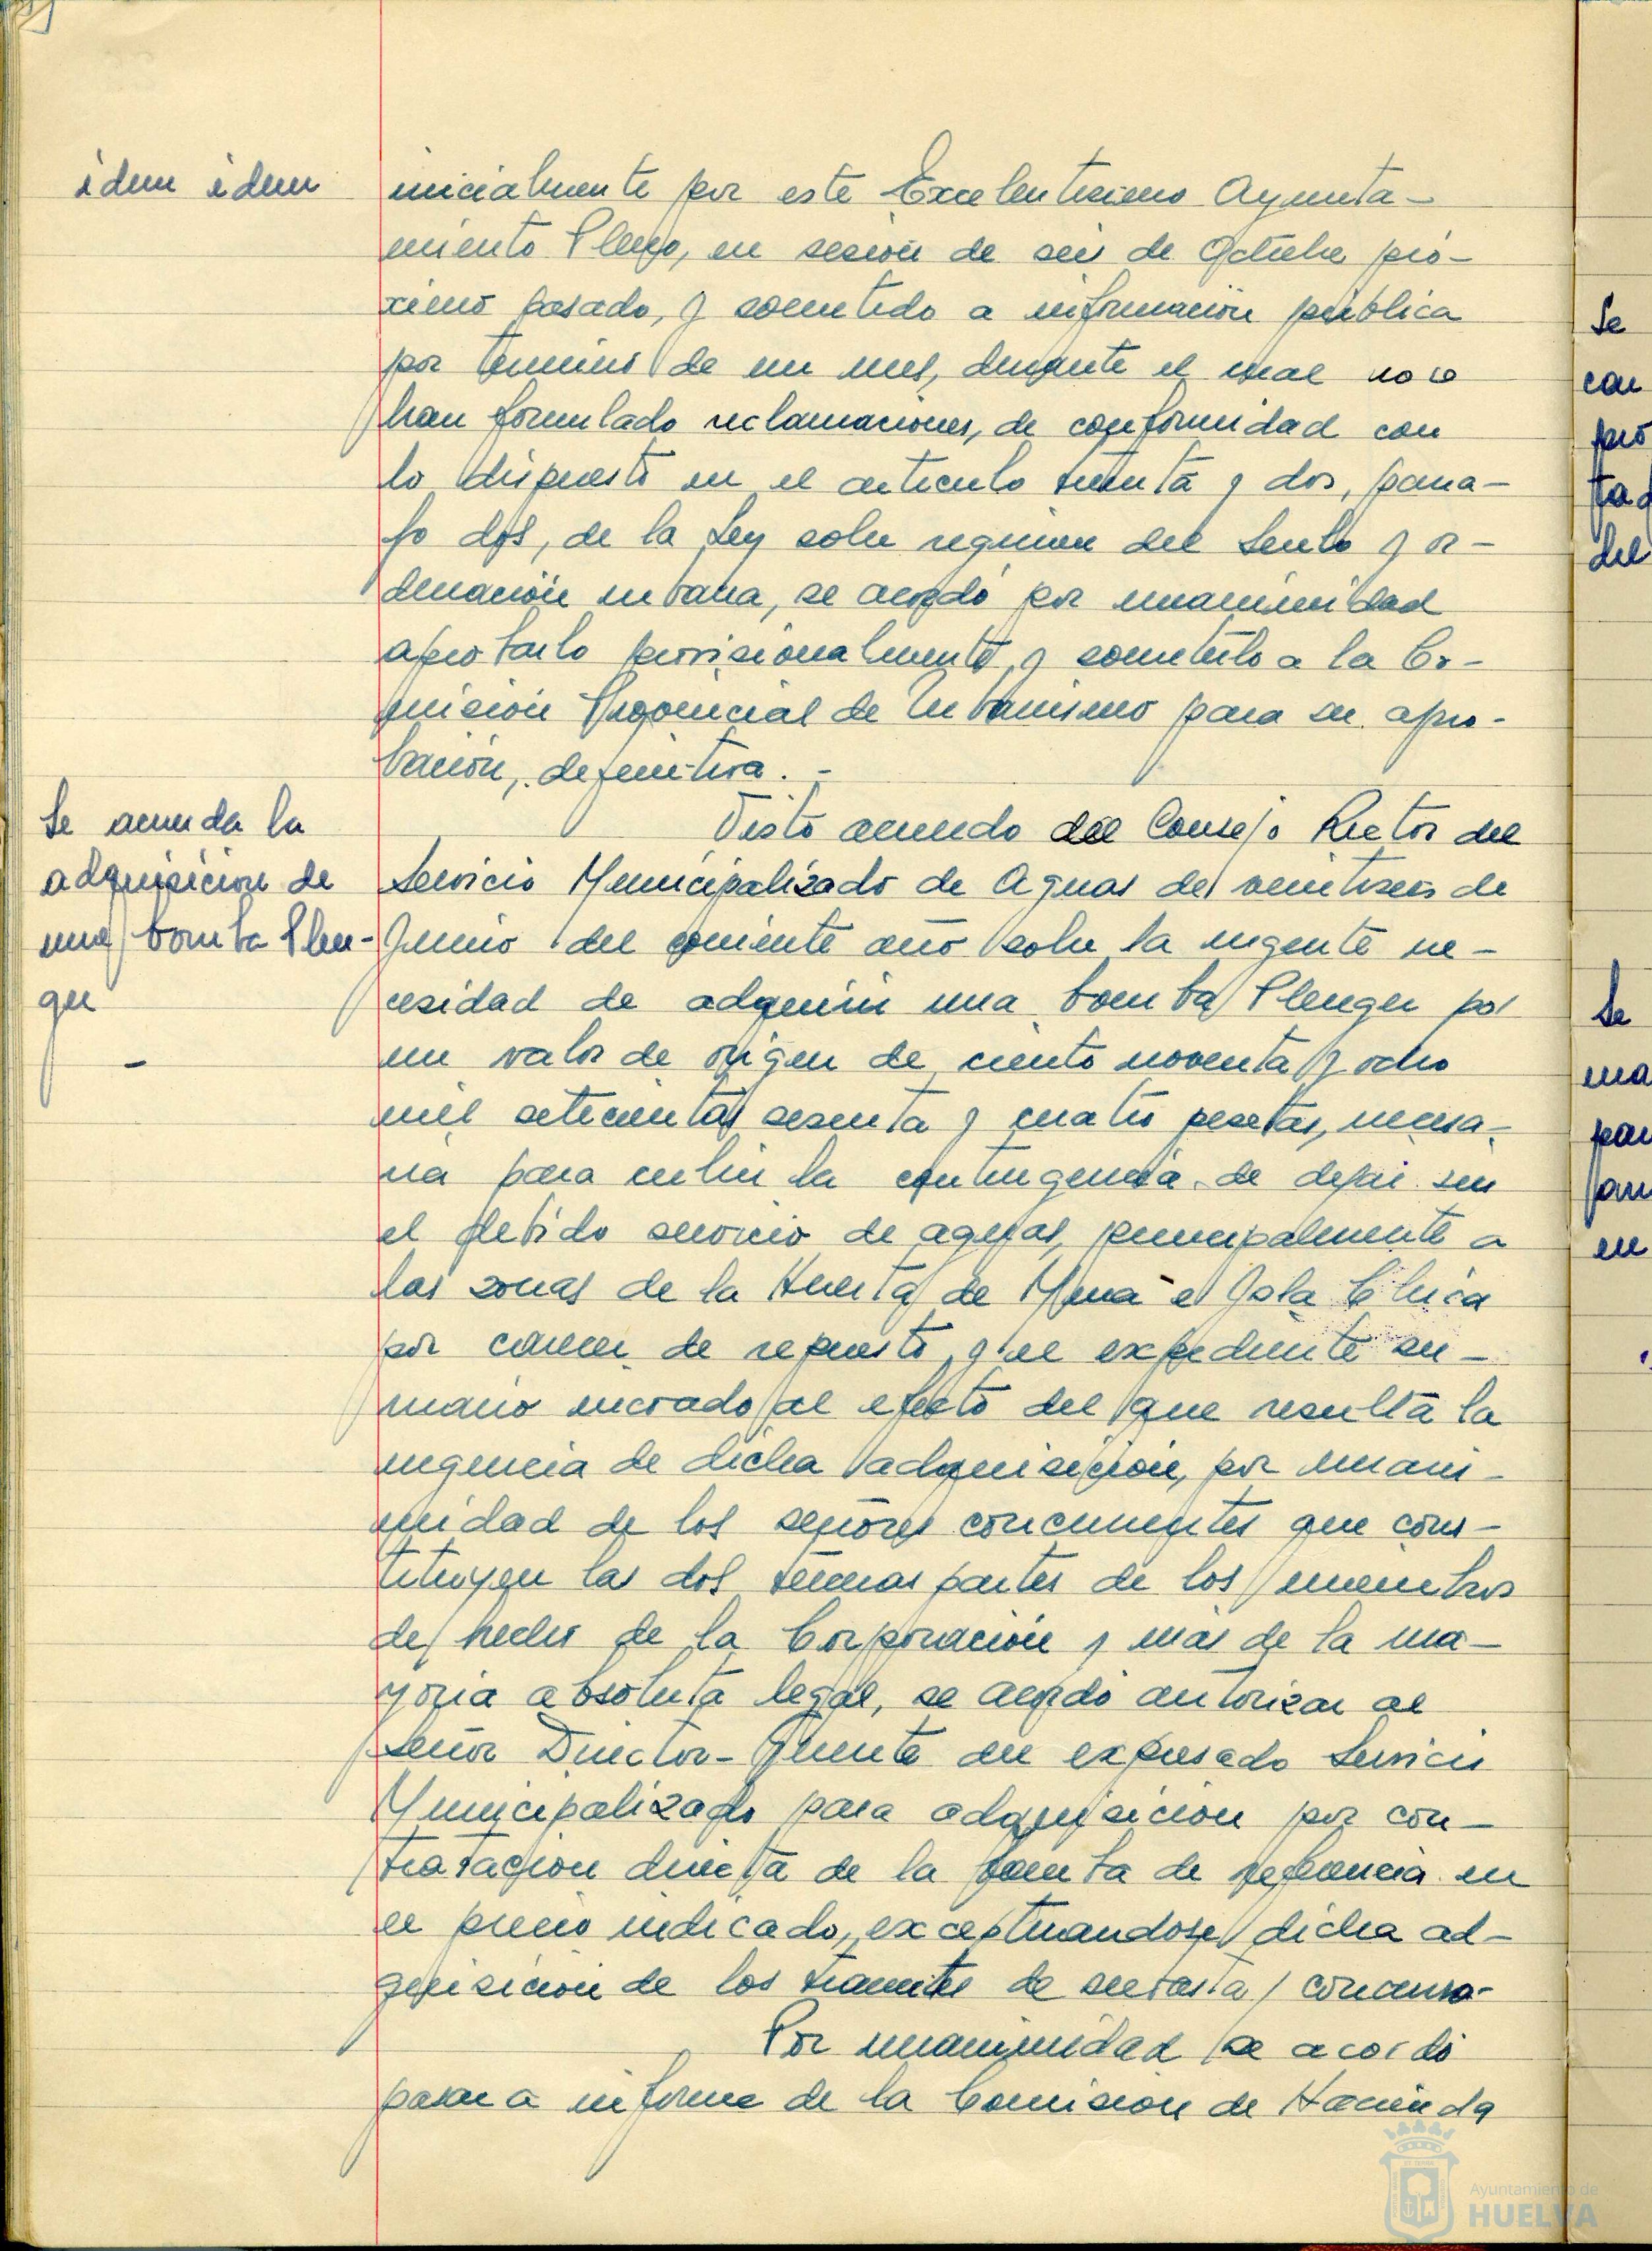 idem idem
inicialmente por este Excelentisimo Ayunta-
miento Pleno, en sesión de seis de Octubre pró-
ximo pasado, y sometido a información pública
por termino de un mes, durante el cual no se
han formulado reclamaciones, de conformidad con
lo dispuesto en el articulo treinta y dos, parra-
fo dos, de la Ley sobre regimen del Suelo y or-
denación urbana, se acordó por unanimidad
aprobarlo provisionalmente y someterlo a la Co-
misión Provincial de Urbanismo para su apro-
bación, definitiva. -
Se acuerda la
adquisicion de
una bomba Plen-
ger
-
Visto acuerdo del Consejo Rector del
Servicio Municipalizado de Aguas de veintiseis de
Junio del corriente año sobre la urgente ne-
cesidad de adquirir una bomba Plenger por
un valor de origen de ciento noventa y ocho
mil setecientas sesenta y cuatro pesetas, necesa-
ria para cubrir la contingencia de dejar sin
el debido servicio de aguas, principalmente a
las zonas de la Huerta de Mena e Isla Chica
por carecer de repuesto, y el expediente su-
mario incoado al efecto del que resulta la
urgencia de dicha adquisición, por unani-
midad de los señores concurrentes que cons-
tituyen las dos terceras partes de los miembros
de hecho de la Corporación y más de la ma-
yoria absoluta legal, se acordó autorizar al
Señor Director-Gerente del expresado Servicio
Municipalizado para adquisición por con-
tratación directa de la bomba de referencia en
el precio indicado, exceptuandose dicha ad-
quisición de los tramites de subasta / concurso-
Por unanimidad se acordó
pasar a informe de la Comisión de Hacienda
Se
con
pro
tad
del
Se
ma
par
en
Ayuntamiento de
HUELVA